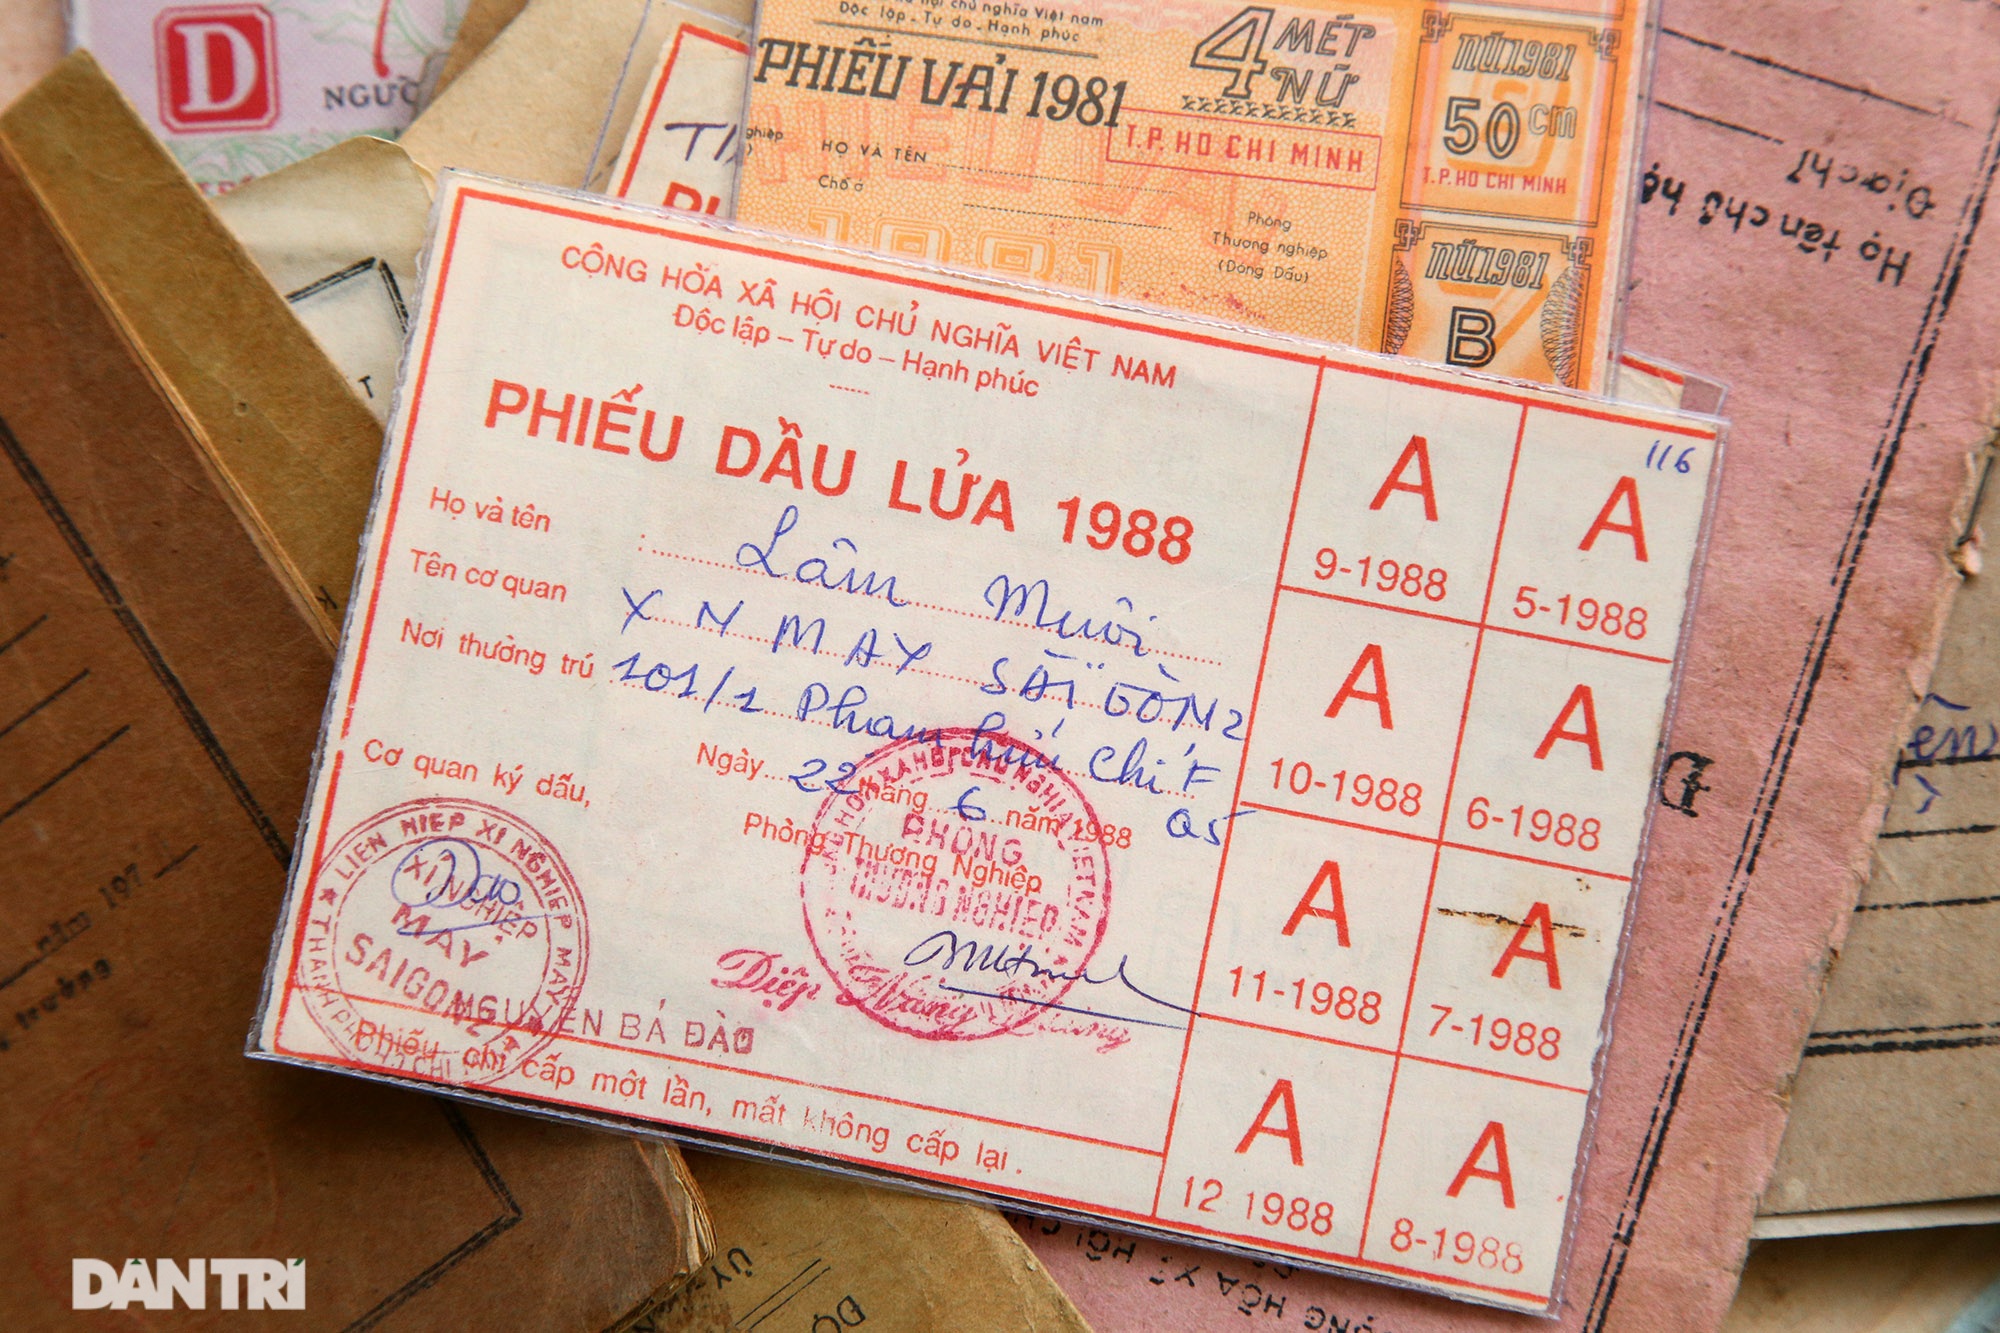 D
NGƯỜ
Độc lập - Tự do - Hạnh phúc
PHIẾU VẢI 1981
4 MÉT
NỮ
T.P. HO CHI MINH
HỌ VÀ TÊN
Chỗ ở
Phòng
Thương nghiệp
(Đóng Dấu)
1981
NỮ 1981
50 cm
T.P. HO CHI MINH
NỮ 1981
B
Họ tên chủ hộ
Địa chỉ
CỘNG HÒA XÃ HỘI CHỦ NGHĨA VIỆT NAM
Độc lập – Tự do – Hạnh phúc
PHIẾU DẦU LỬA 1988
Họ và tên : Lâm Muôi
Tên cơ quan XN MAY SÀI GÒN 2
Nơi thường trú 101/1 Phạm hữu Chí F
Q5
Ngày 22 tháng 6 năm 1988
Cơ quan ký dấu,
Phòng Thương Nghiệp
PHÒNG
THƯƠNG NGHIỆP
LIÊN HIỆP XÍ NGHIỆP MAY
XÍ NGHIỆP
MAY
SAIGON 2
NGUYỄN BÁ ĐÀO
Phiếu chỉ cấp một lần, mất không cấp lại.
116
A
9-1988
A
5-1988
A
10-1988
A
6-1988
A
11-1988
A
7-1988
A
12 1988
A
8-1988
năm 197
trưởng
Đ
DÂN TRÍ